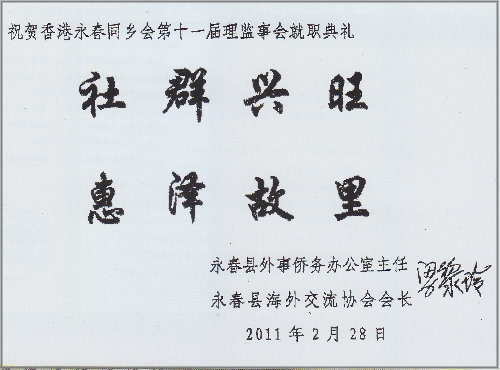 祝贺香港永春同乡会第十一届理监事会就职典礼
社群兴旺
惠泽故里
永春县外事侨务办公室主任
永春县海外交流协会会长
2011年2月28日